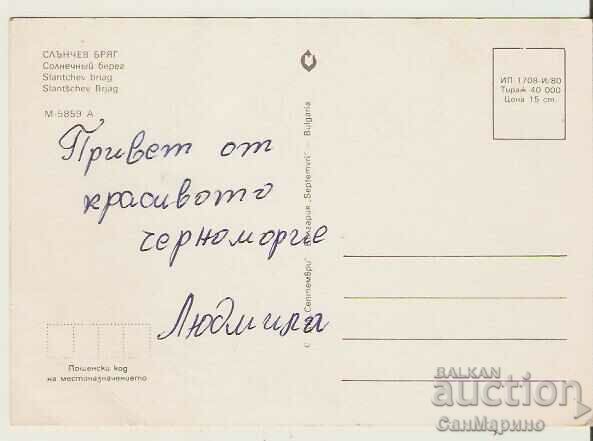 СЛЪНЧЕВ БРЯГ
Солнечный берег
Slantchev briag
Slantschev Brjag
М-5859 А
ИП 1708-И/80
Тираж 40 000
Цена 15 ст.
Привет от
красивото
черноморие
Людмила
Септември" България „Septemvri" – Bulgaria
Пощенски код
на местоназначението
BALKAN
auction
СанМарино